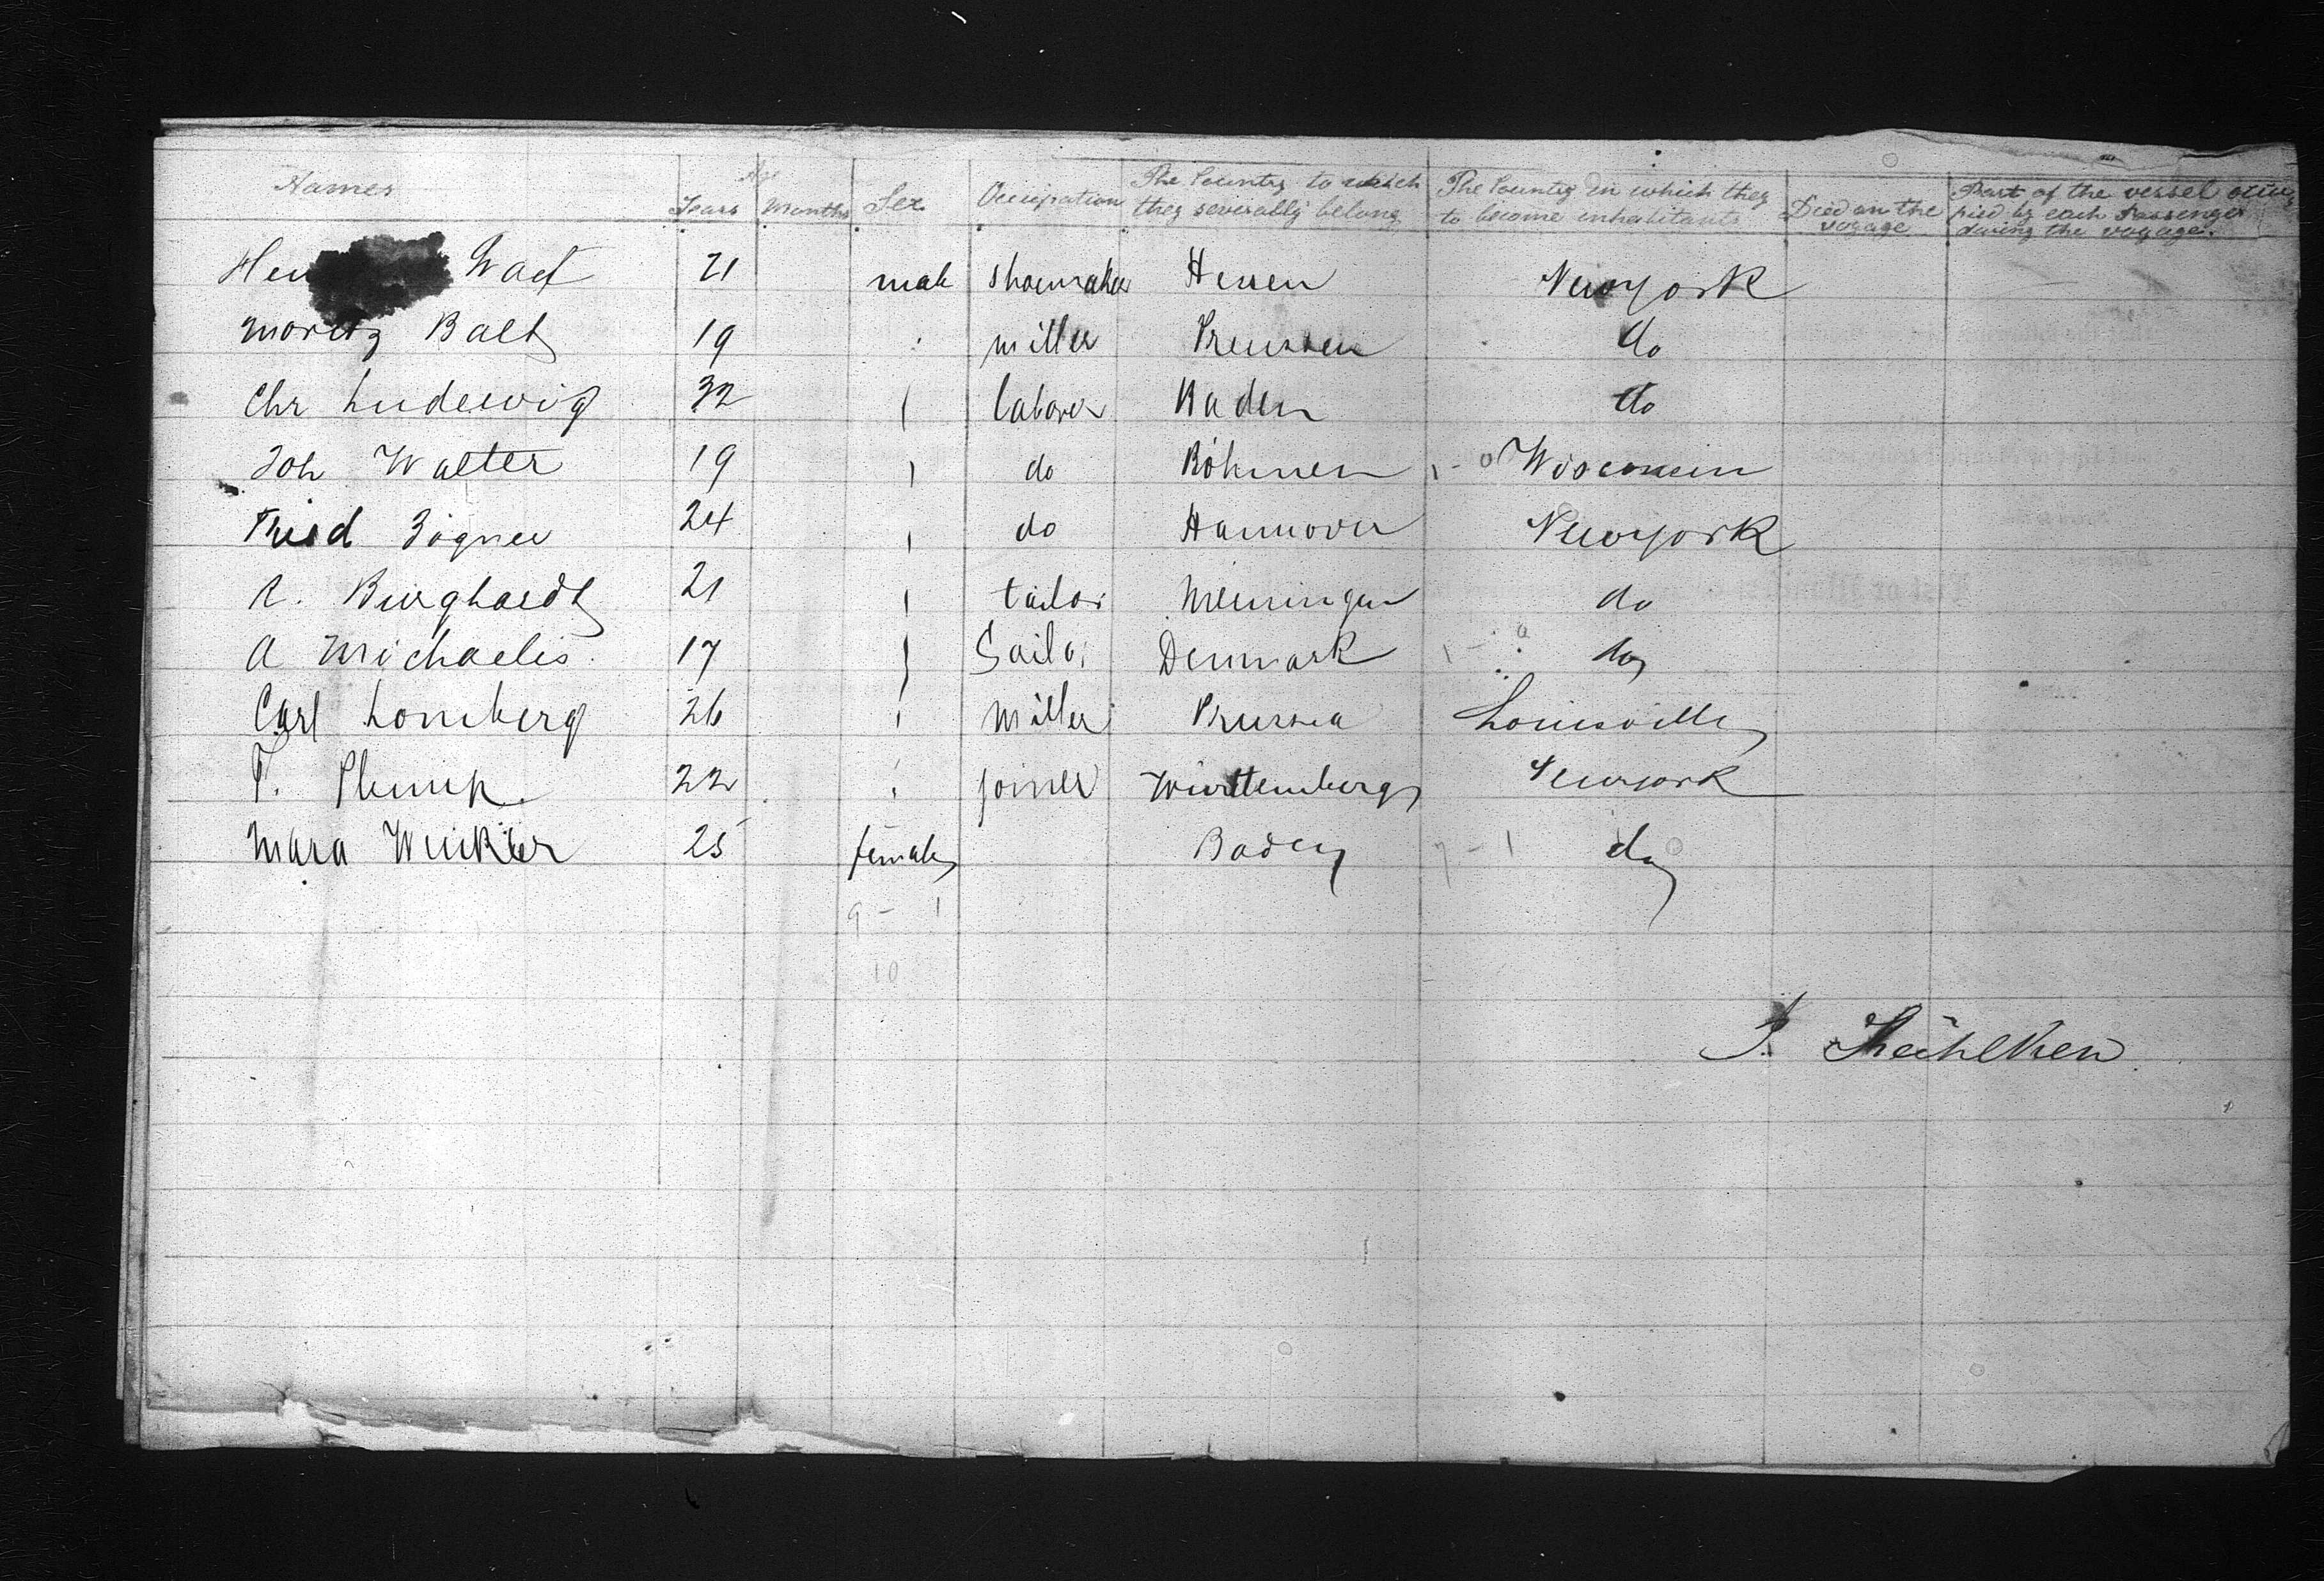 Names Age Years Months Sex Occupation The Country to which they severally belong The Country in which they to become inhabitants Died on the voyage Part of the vessel occupied by each Passenger during the voyage.
21 male shoemaker Hessen Newyork
Moritz Balt 19 miller Preussen do
Chr Ludewig 32 laborer Baden do
Joh Walter 19 do Böhmen 1 - 0 Wisconsin
24 do Hannover Newyork
Burghardt 21 tailor Meiningen do
A Michaelis 17 Sailor Denmark do
Carl Lomberg 26 miller Prussia Louisville
F. 22 joiner Württemberg Newyork
Mara Winkler 25 female Baden 7 - 1 do
9 - 1
10